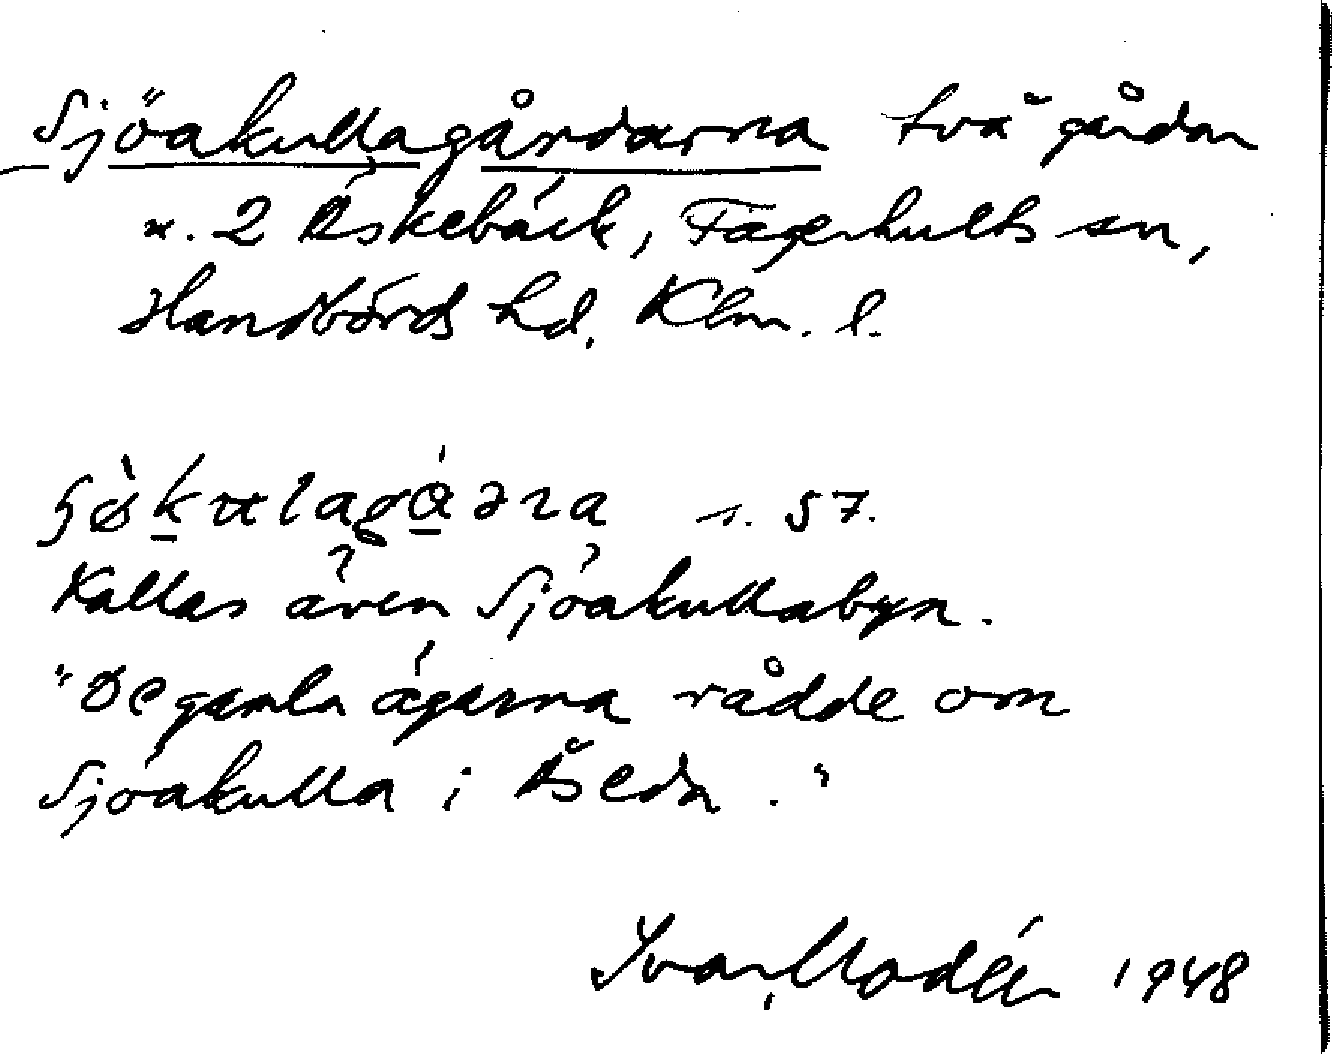 Sjöakullagårdarna två gårdar
n. 2 Äskebäck, Fagerhults sn,
Handbörds hd. Klm. l.
s. 57.
Kallas även Sjöakullabyn.
"De gamla ägarna rådde om
Sjöakulla i Åseda."
Ivar Modéer 1948